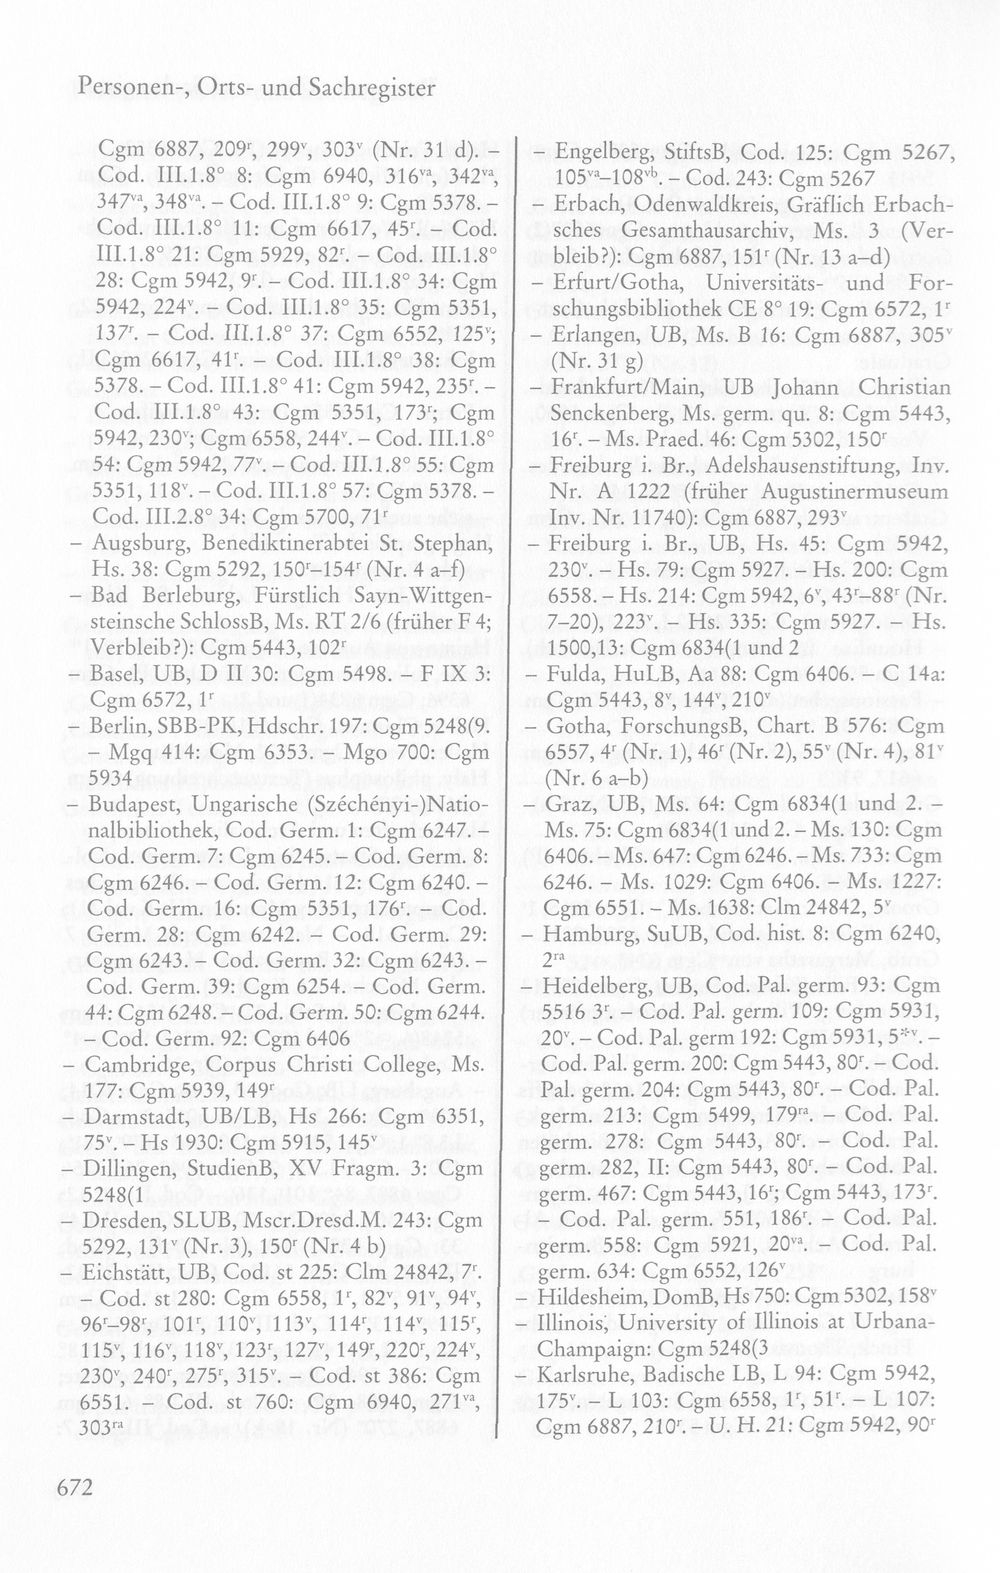 Personen-, Orts- und Sachregister
Cgm 6887, 209ʳ, 299ᵛ, 303ᵛ (Nr. 31 d). –
Cod. III.1.8° 8: Cgm 6940, 316ᵛᵃ, 342ᵛᵃ,
347ᵛᵃ, 348ᵛᵃ. – Cod. III.1.8° 9: Cgm 5378. –
Cod. III.1.8° 11: Cgm 6617, 45ʳ. – Cod.
III.1.8° 21: Cgm 5929, 82ʳ. – Cod. III.1.8°
28: Cgm 5942, 9ʳ. – Cod. III.1.8° 34: Cgm
5942, 224ᵛ. – Cod. III.1.8° 35: Cgm 5351,
137ʳ. – Cod. III.1.8° 37: Cgm 6552, 125ᵛ;
Cgm 6617, 41ʳ. – Cod. III.1.8° 38: Cgm
5378. – Cod. III.1.8° 41: Cgm 5942, 235ʳ. –
Cod. III.1.8° 43: Cgm 5351, 173ʳ; Cgm
5942, 230ᵛ; Cgm 6558, 244ᵛ. – Cod. III.1.8°
54: Cgm 5942, 77ᵛ. – Cod. III.1.8° 55: Cgm
5351, 118ᵛ. – Cod. III.1.8° 57: Cgm 5378. –
Cod. III.2.8° 34: Cgm 5700, 71ʳ
– Augsburg, Benediktinerabtei St. Stephan,
Hs. 38: Cgm 5292, 150ʳ–154ʳ (Nr. 4 a–f)
– Bad Berleburg, Fürstlich Sayn-Wittgen-
steinsche SchlossB, Ms. RT 2/6 (früher F 4;
Verbleib?): Cgm 5443, 102ʳ
– Basel, UB, D II 30: Cgm 5498. – F IX 3:
Cgm 6572, 1ʳ
– Berlin, SBB-PK, Hdschr. 197: Cgm 5248(9.
– Mgq 414: Cgm 6353. – Mgo 700: Cgm
5934
– Budapest, Ungarische (Széchényi-)Natio-
nalbibliothek, Cod. Germ. 1: Cgm 6247. –
Cod. Germ. 7: Cgm 6245. – Cod. Germ. 8:
Cgm 6246. – Cod. Germ. 12: Cgm 6240. –
Cod. Germ. 16: Cgm 5351, 176ʳ. – Cod.
Germ. 28: Cgm 6242. – Cod. Germ. 29:
Cgm 6243. – Cod. Germ. 32: Cgm 6243. –
Cod. Germ. 39: Cgm 6254. – Cod. Germ.
44: Cgm 6248. – Cod. Germ. 50: Cgm 6244.
– Cod. Germ. 92: Cgm 6406
– Cambridge, Corpus Christi College, Ms.
177: Cgm 5939, 149ʳ
– Darmstadt, UB/LB, Hs 266: Cgm 6351,
75ᵛ. – Hs 1930: Cgm 5915, 145ᵛ
– Dillingen, StudienB, XV Fragm. 3: Cgm
5248(1
– Dresden, SLUB, Mscr.Dresd.M. 243: Cgm
5292, 131ᵛ (Nr. 3), 150ʳ (Nr. 4 b)
– Eichstätt, UB, Cod. st 225: Clm 24842, 7ʳ.
– Cod. st 280: Cgm 6558, 1ʳ, 82ᵛ, 91ᵛ, 94ᵛ,
96ʳ–98ʳ, 101ʳ, 110ᵛ, 113ᵛ, 114ʳ, 114ᵛ, 115ʳ,
115ᵛ, 116ᵛ, 118ᵛ, 123ʳ, 127ᵛ, 149ʳ, 220ʳ, 224ᵛ,
230ᵛ, 240ʳ, 275ʳ, 315ᵛ. – Cod. st 386: Cgm
6551. – Cod. st 760: Cgm 6940, 271ᵛᵃ,
303ʳᵃ
– Engelberg, StiftsB, Cod. 125: Cgm 5267,
105ᵛᵃ–108ᵛᵇ. – Cod. 243: Cgm 5267
– Erbach, Odenwaldkreis, Gräflich Erbach-
sches Gesamthausarchiv, Ms. 3 (Ver-
bleib?): Cgm 6887, 151ʳ (Nr. 13 a–d)
– Erfurt/Gotha, Universitäts- und For-
schungsbibliothek CE 8° 19: Cgm 6572, 1ʳ
– Erlangen, UB, Ms. B 16: Cgm 6887, 305ᵛ
(Nr. 31 g)
– Frankfurt/Main, UB Johann Christian
Senckenberg, Ms. germ. qu. 8: Cgm 5443,
16ʳ. – Ms. Praed. 46: Cgm 5302, 150ʳ
– Freiburg i. Br., Adelshausenstiftung, Inv.
Nr. A 1222 (früher Augustinermuseum
Inv. Nr. 11740): Cgm 6887, 293ᵛ
– Freiburg i. Br., UB, Hs. 45: Cgm 5942,
230ᵛ. – Hs. 79: Cgm 5927. – Hs. 200: Cgm
6558. – Hs. 214: Cgm 5942, 6ᵛ, 43ʳ–88ʳ (Nr.
7–20), 223ᵛ. – Hs. 335: Cgm 5927. – Hs.
1500,13: Cgm 6834(1 und 2
– Fulda, HuLB, Aa 88: Cgm 6406. – C 14a:
Cgm 5443, 8ᵛ, 144ᵛ, 210ᵛ
– Gotha, ForschungsB, Chart. B 576: Cgm
6557, 4ʳ (Nr. 1), 46ʳ (Nr. 2), 55ᵛ (Nr. 4), 81ᵛ
(Nr. 6 a–b)
– Graz, UB, Ms. 64: Cgm 6834(1 und 2. –
Ms. 75: Cgm 6834(1 und 2. – Ms. 130: Cgm
6406. – Ms. 647: Cgm 6246. – Ms. 733: Cgm
6246. – Ms. 1029: Cgm 6406. – Ms. 1227:
Cgm 6551. – Ms. 1638: Clm 24842, 5ᵛ
– Hamburg, SuUB, Cod. hist. 8: Cgm 6240,
2ʳᵃ
– Heidelberg, UB, Cod. Pal. germ. 93: Cgm
5516 3ʳ. – Cod. Pal. germ. 109: Cgm 5931,
20ᵛ. – Cod. Pal. germ 192: Cgm 5931, 5*ᵛ. –
Cod. Pal. germ. 200: Cgm 5443, 80ʳ. – Cod.
Pal. germ. 204: Cgm 5443, 80ʳ. – Cod. Pal.
germ. 213: Cgm 5499, 179ʳᵃ. – Cod. Pal.
germ. 278: Cgm 5443, 80ʳ. – Cod. Pal.
germ. 282, II: Cgm 5443, 80ʳ. – Cod. Pal.
germ. 467: Cgm 5443, 16ʳ; Cgm 5443, 173ʳ.
– Cod. Pal. germ. 551, 186ʳ. – Cod. Pal.
germ. 558: Cgm 5921, 20ᵛᵃ. – Cod. Pal.
germ. 634: Cgm 6552, 126ᵛ
– Hildesheim, DomB, Hs 750: Cgm 5302, 158ᵛ
– Illinois, University of Illinois at Urbana-
Champaign: Cgm 5248(3
– Karlsruhe, Badische LB, L 94: Cgm 5942,
175ᵛ. – L 103: Cgm 6558, 1ʳ, 51ʳ. – L 107:
Cgm 6887, 210ʳ. – U. H. 21: Cgm 5942, 90ʳ
672